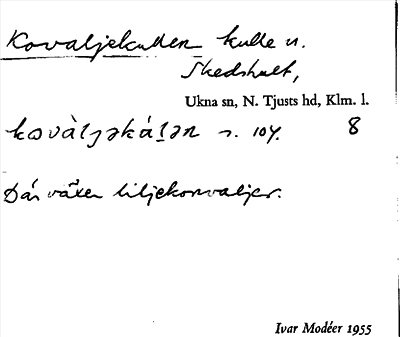 Kovaljekullen kulle n.
Skedshult,
Ukna sn, N. Tjusts hd, Klm. l.
kovàljəkálən s. 104. 8
Där växer liljekonvaljer.
Ivar Modéer 1955